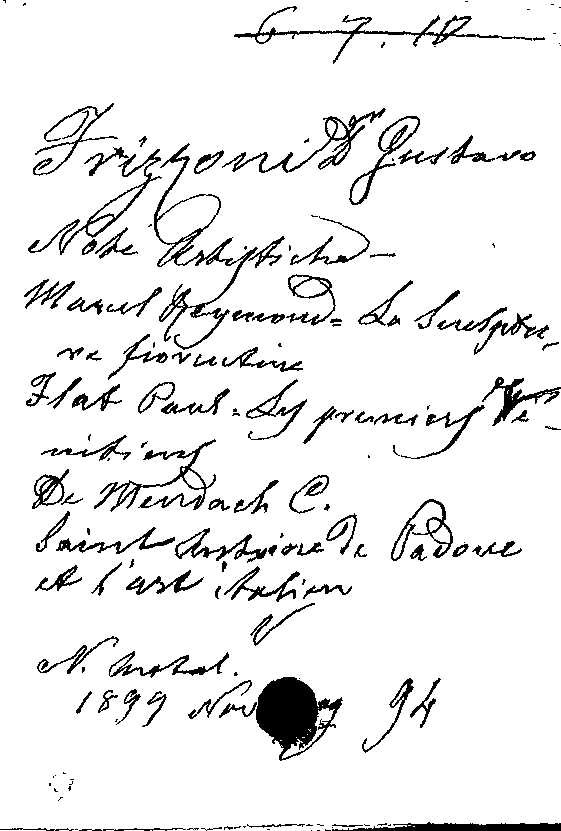 6. 7. 10
Frizzoni Dr Gustavo
Note Artistiche —
Marcel Reymond = La Sculptu-
re florentine
Flat Paul = Les premiers Vé-
nitiens
De Mandach C.
Saint Antoine de Padoue
et l'art italien
N. Antol.
1899 Nov 94